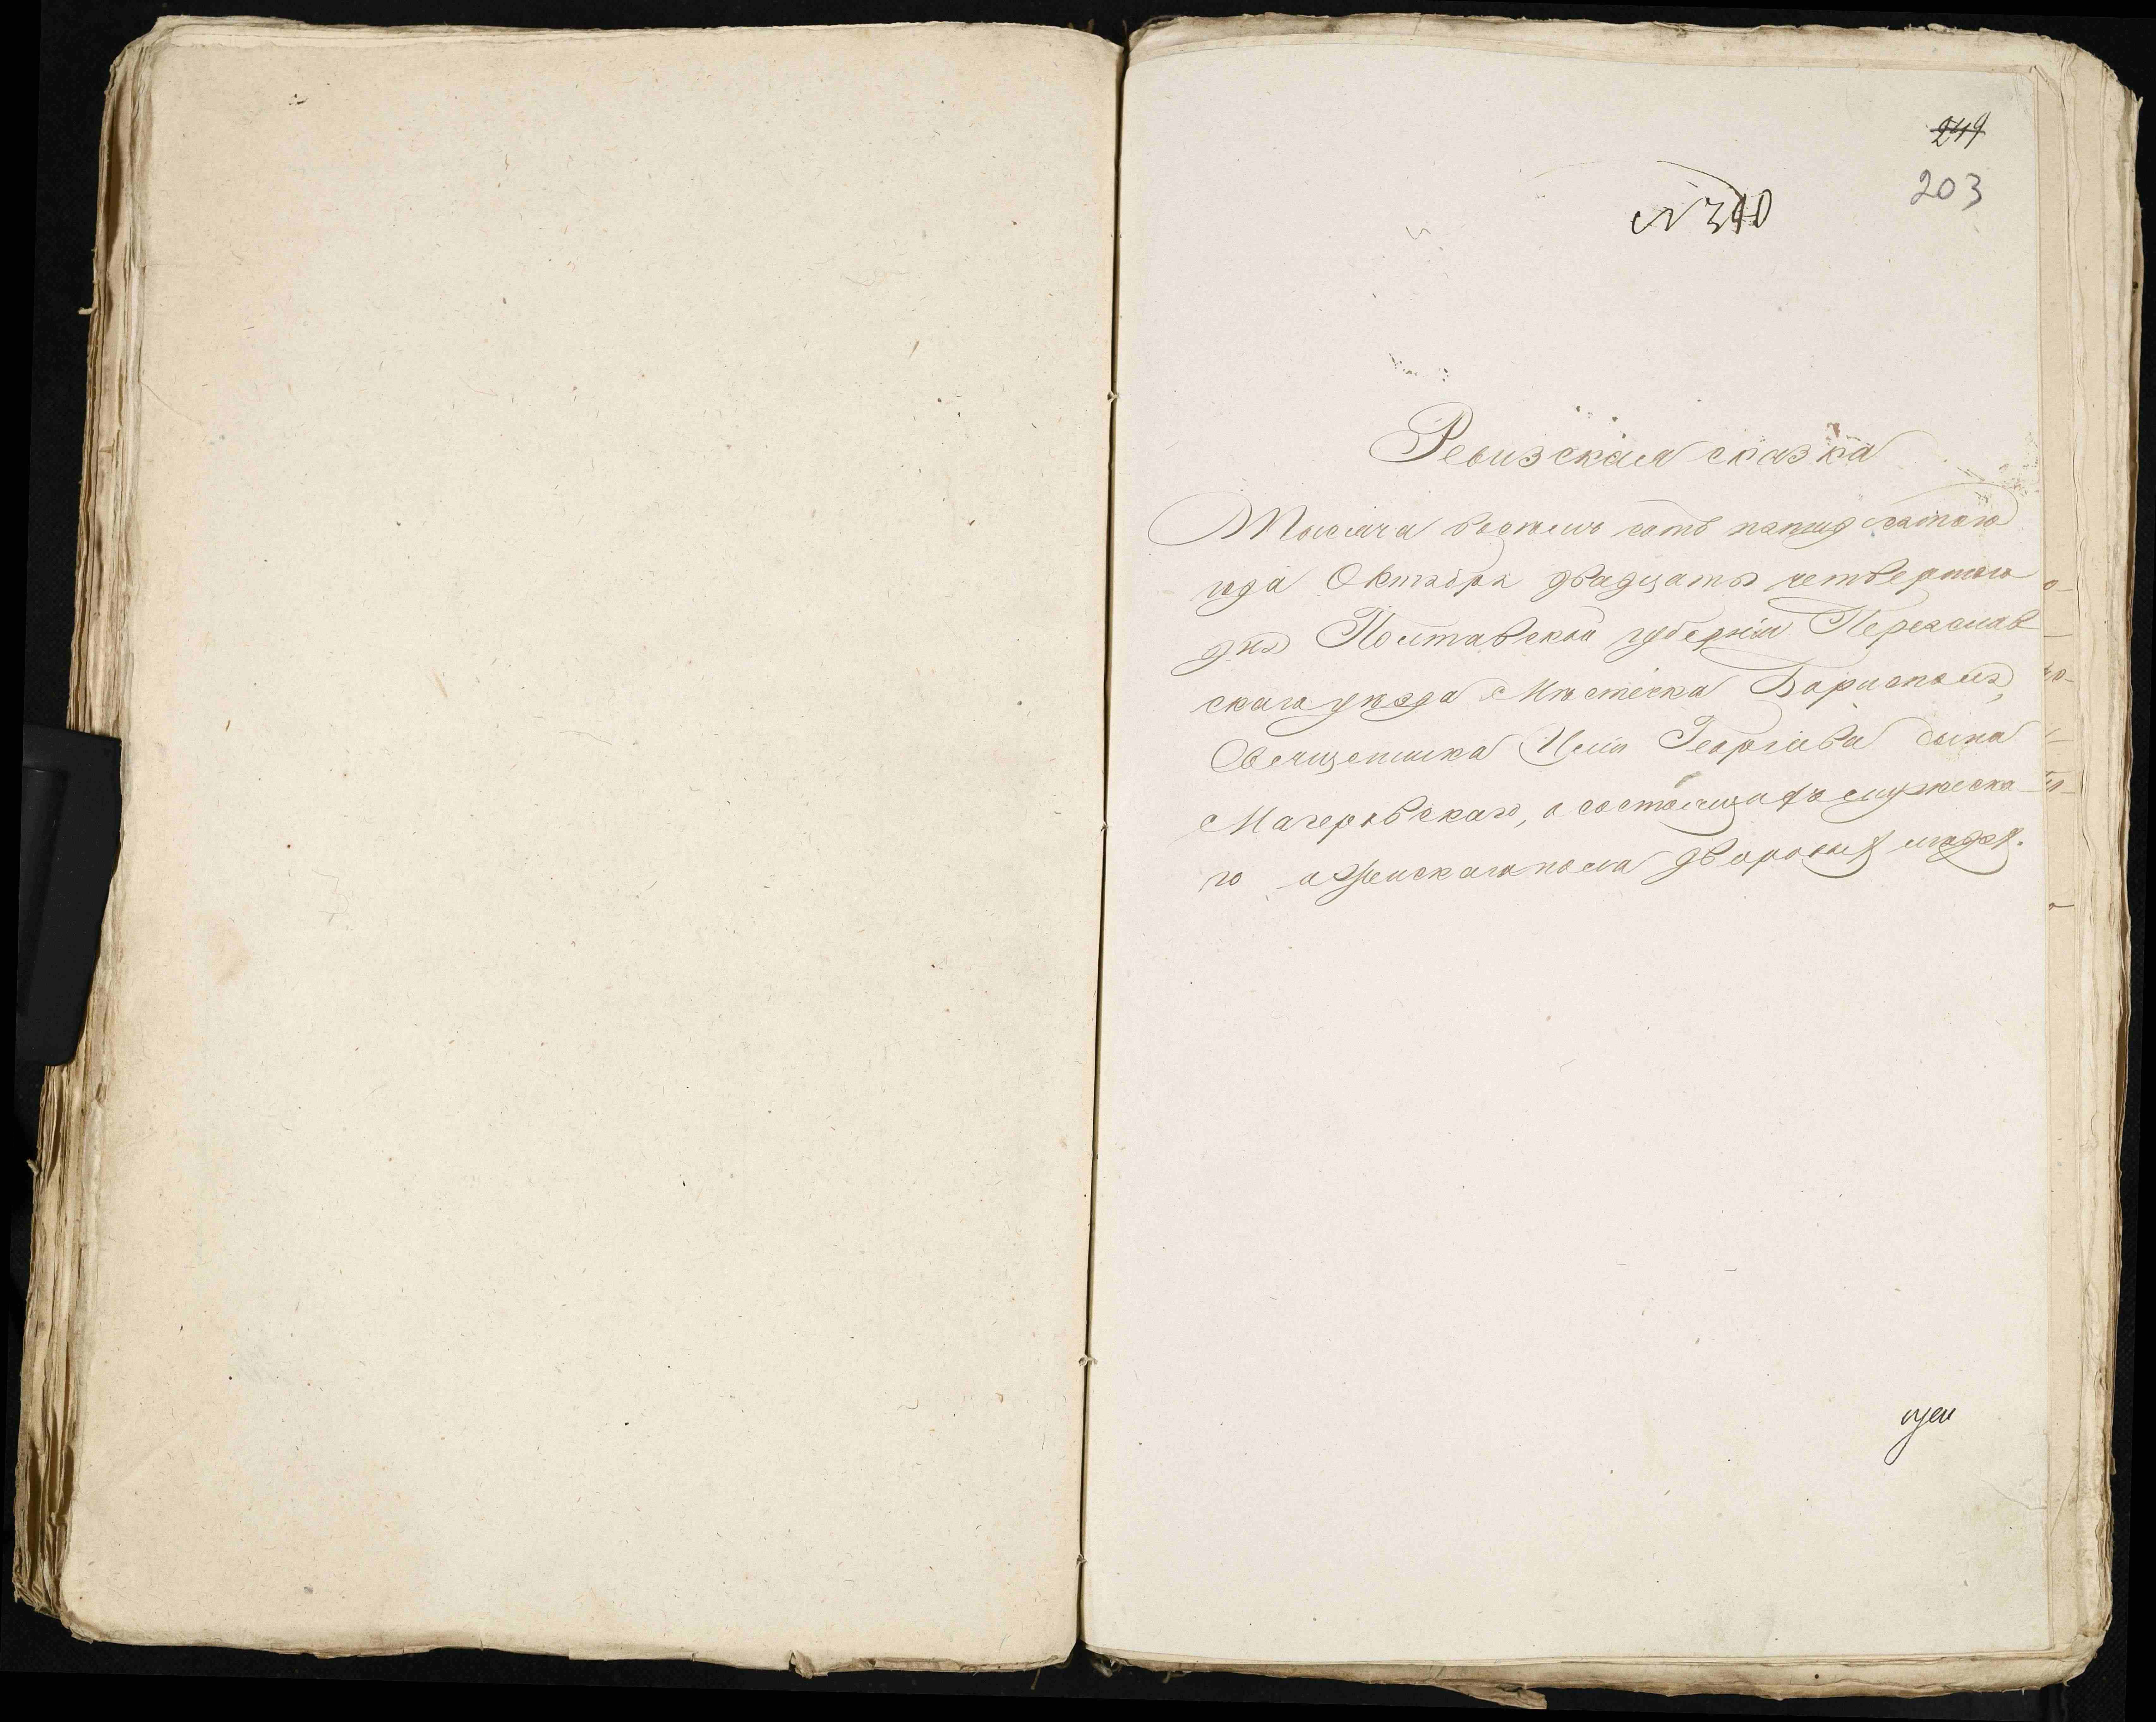 249
203
№ 310
Ревизская сказка
Тысяча восемь сотъ пятидесятого
года Октября двадцать четвертого
дня Полтавской губерніи Переяслав
скаго уѣзда Мѣстечка Борисполя,
Священника Иліи Георгіева сына
Мачеровскаго, о состоящихъ мужеска
го и женскаго пола дворовых людях.